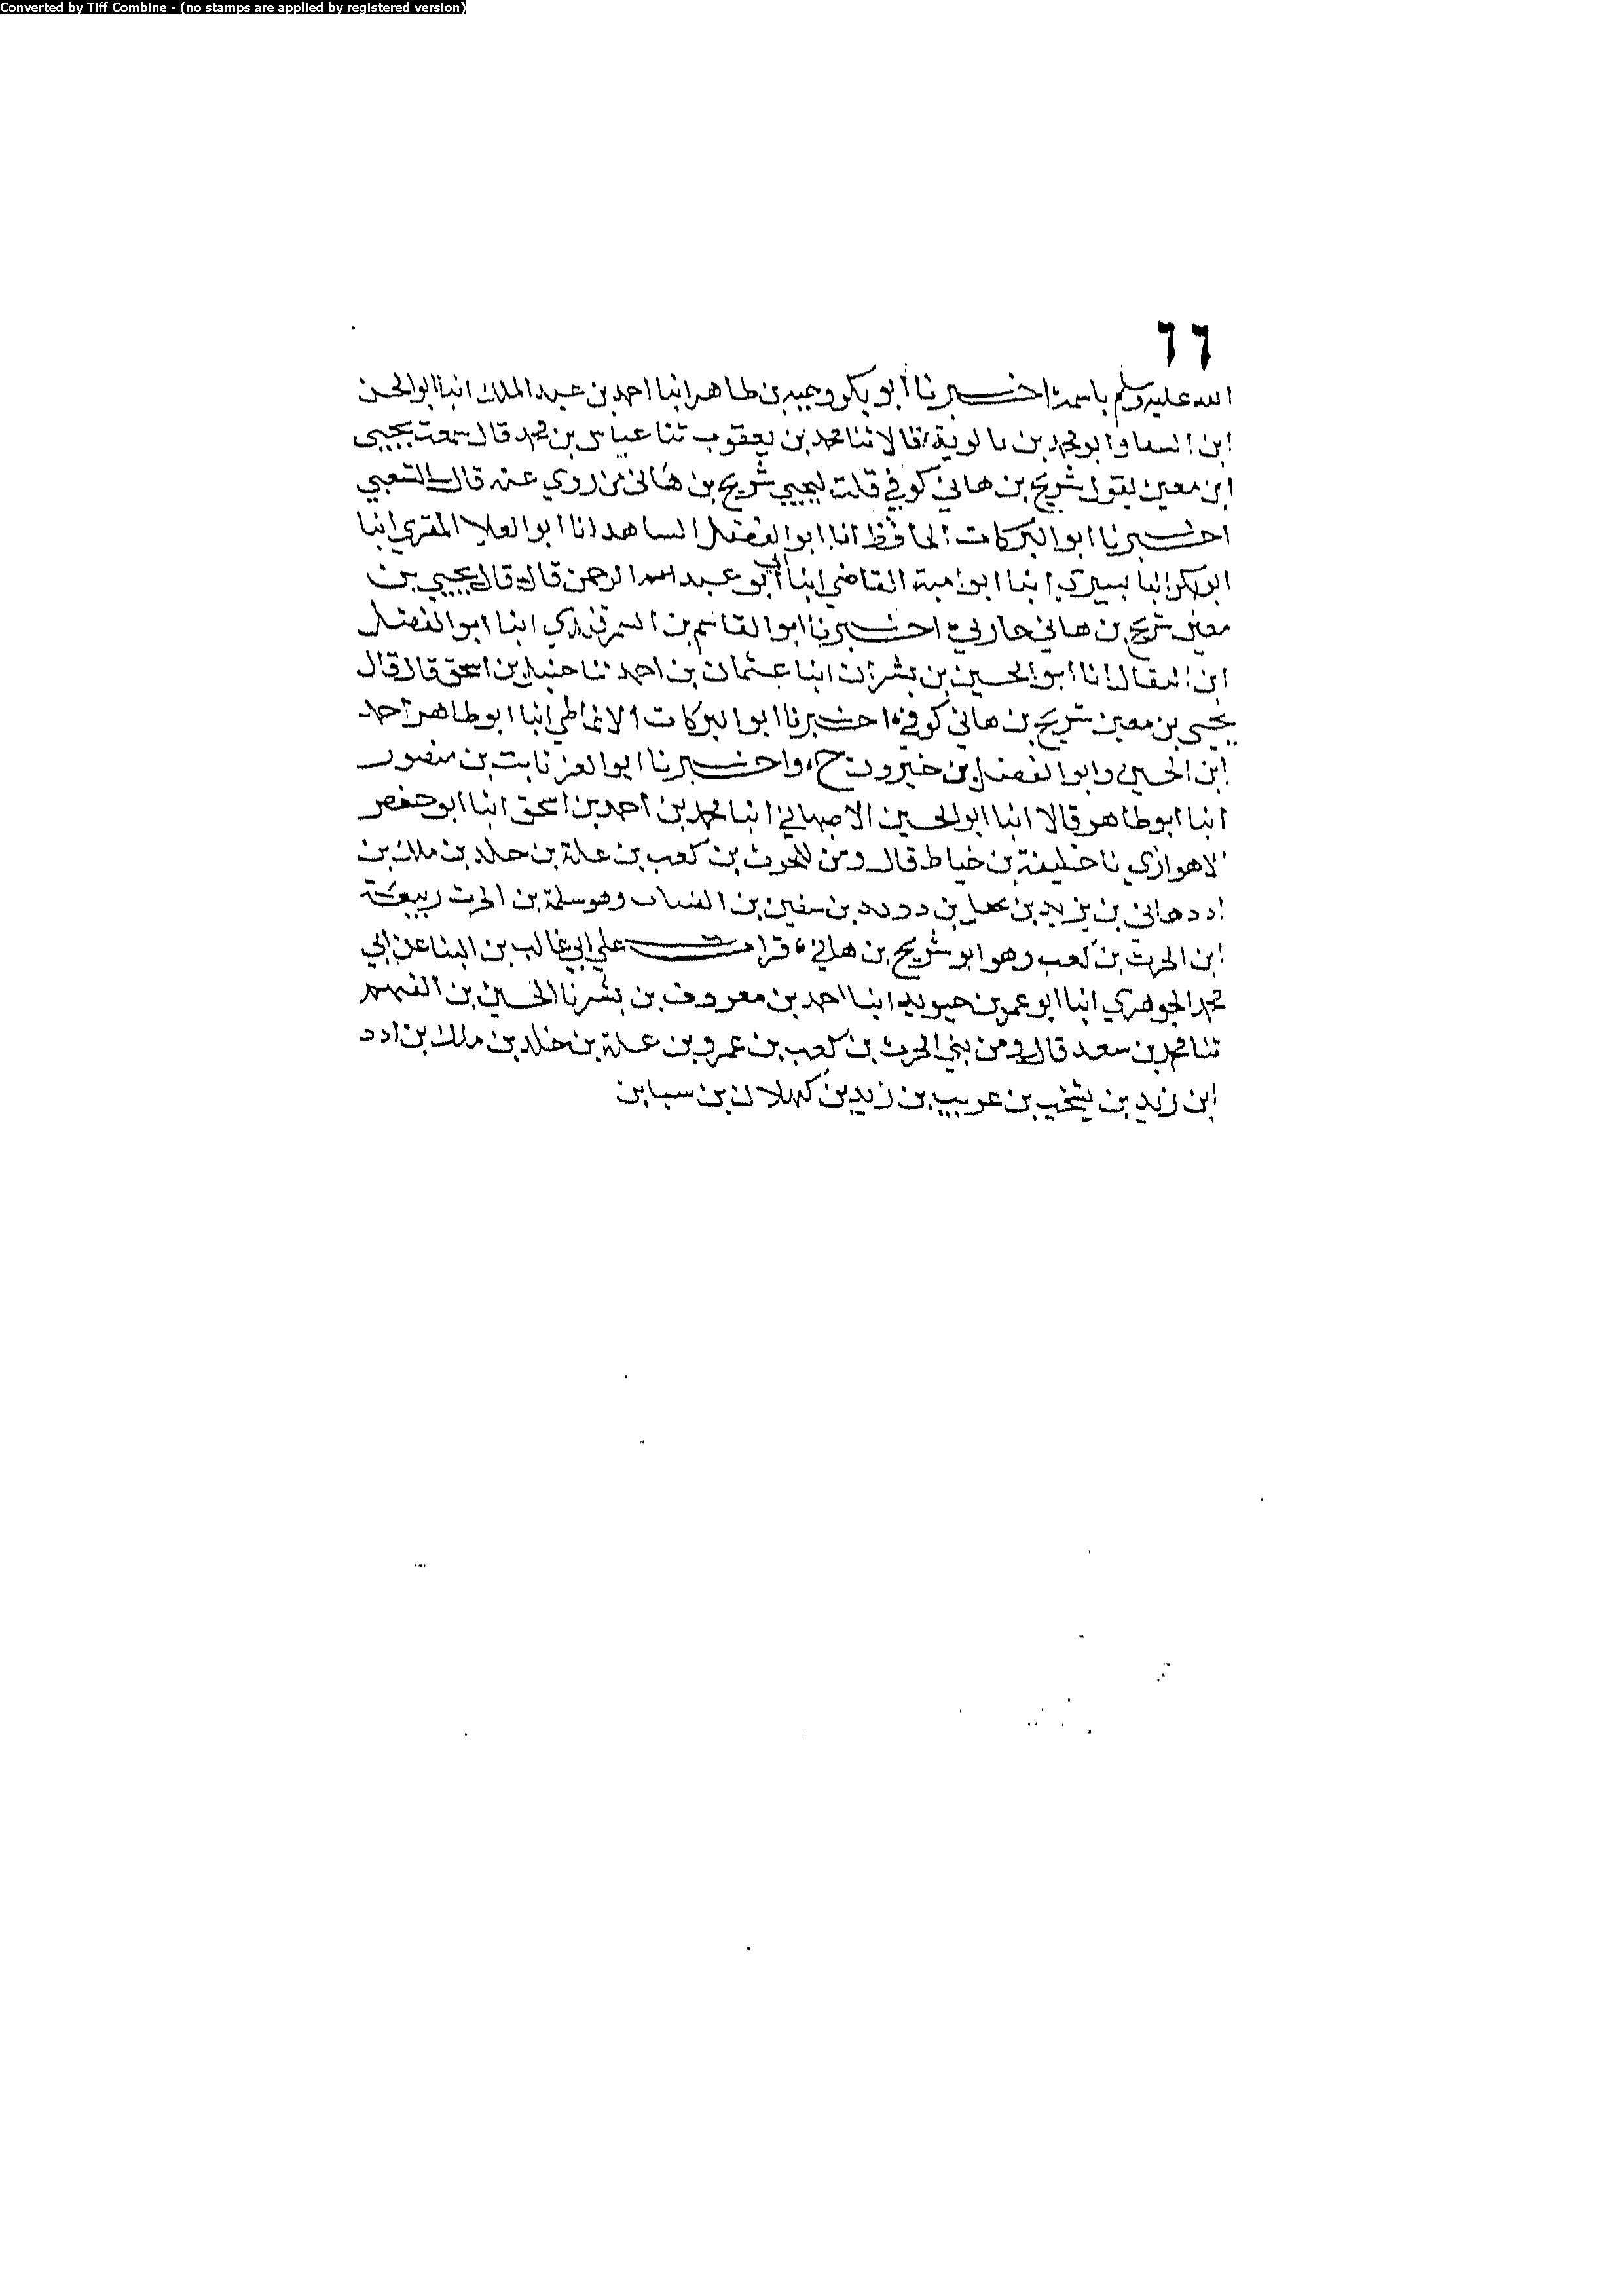 Converted by Tiff Combine - (no stamps are applied by registered version)
٦٦
الله عليه وسلم باسمه اخبرنا أبو بكر وجيه بن طاهر انبا احمد بن عبد الملك انبا ابو الحسن
ابن السقا وابو محمد بن بالوية قالا ثنا محمد بن يعقوب ثنا عباس بن محمد قال سمعت يحيى
ابن معين يقول شريح بن هاني كوفي قلت ليحيي شريح بن هانى من روي عنه قال الشعبي
اخبرنا ابو البركات الحافظ انا ابو الفضل الساهد انا ابو العلا المقري انبا
ابو بكر البابسيري انبا ابو امية القاضي انبا أبي ابو عبد الرحمن قال قال يحيي بن
معين شريح بن هاني حارثي اخبرنا ابو القاسم بن السمرقندي انبا ابو الفضل
ابن البقال انا ابو الحسين بن بشران انبا عثمان بن احمد ثنا حنبل بن اسحق قال قال
يحيى بن معين شريح بن هاني كوفي اخبرنا ابو البركات الانماطي انبا ابو طاهر احمد
ابن الحسن وابو الفضل بن خيرون ح واخبرنا ابو العز ثابت بن منصور
انبا ابو طاهر قالا انبا ابو الحسين الاصبهاني انبا محمد بن احمد بن اسحق انبا ابو حفص
الاهوازي نا خليفة بن خياط قال ومن الحرث بن كعب بن علة بن خلد بن ملك بن
ادد هانى بن يزيد بن بن دريد بن سفين بن الضباب وهو سلمة بن الحرث ربيعة
ابن الحرث بن كعب وهو ابو شريح بن هاني قرات علي ابي غالب بن البنا عن ابي
محمد الجوهري انبا ابو عمر بن حيويه انبا احمد بن معروف بن بشر نا الحسين بن الفهم
ثنا محمد بن سعد قال ومن بني الحرث بن كعب بن عمرو بن علة بن خلد بن ملك بن ادد
ابن زيد بن يشخب بن عريب بن زيد بن كهلان بن سبا بن